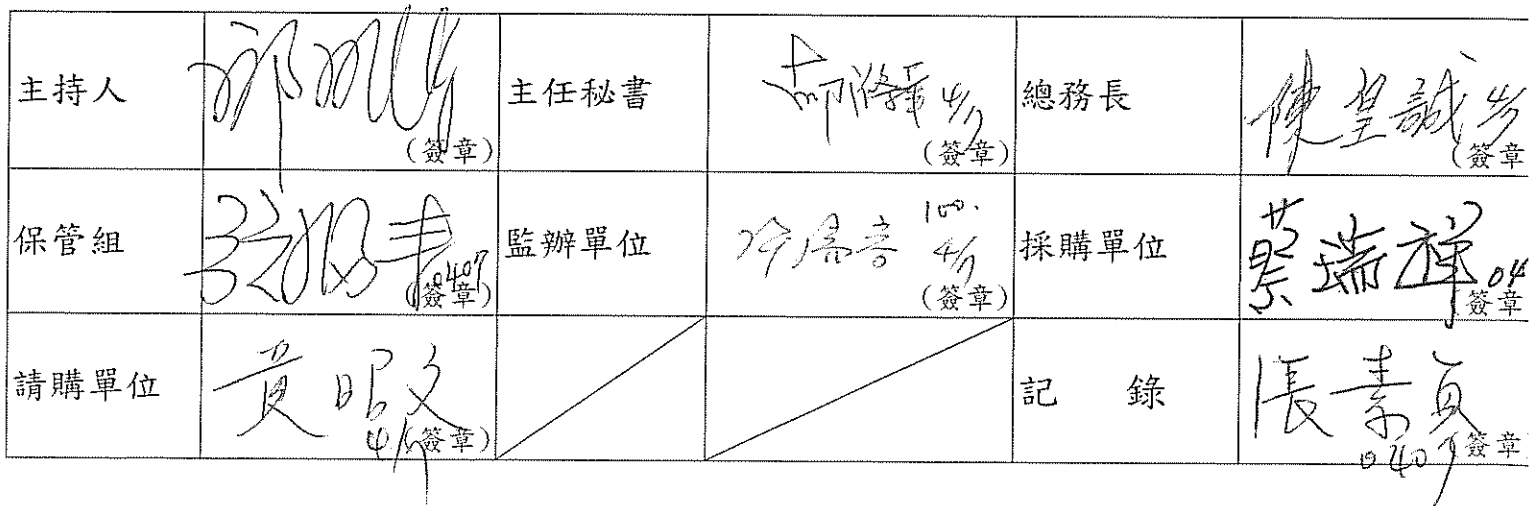 主持人 (簽章) 主任秘書 4/7 (簽章) 總務長 陳皇誠 (簽章
保管組 0407 (簽章) 監辦單位 100. 4/7 (簽章) 採購單位 蔡瑞祥 04 (簽章
請購單位 黃昭文 4/7 (簽章) 記 錄 張素貞 0407 (簽章